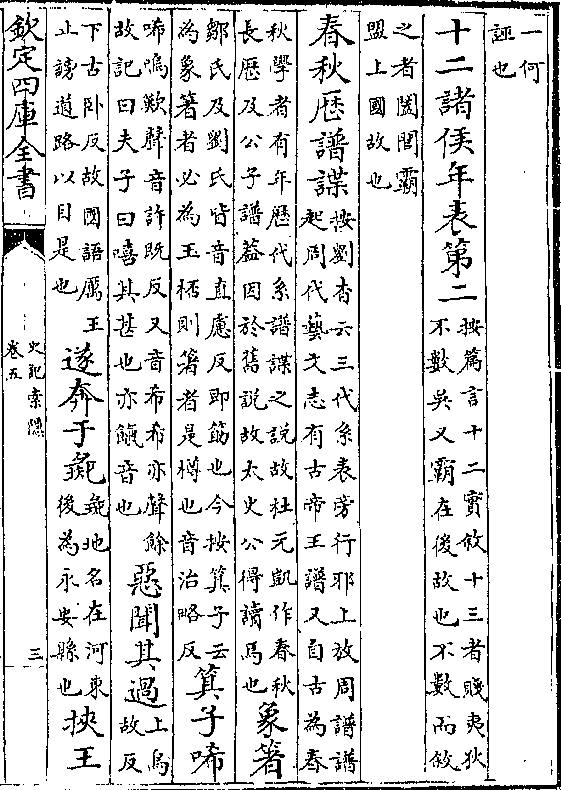 一何
誣也
十二諸侯年表第二
按篇言十二實敘十三者賤夷狄
不數吳又霸在後故也不數而敘
之者闔閭霸
盟上國故也
春秋厯譜諜
按劉杳云三代系表旁行耶上放周譜譜
起周代藝文志有古帝王譜又自古為春
秋學者有年厯代系譜諜之説故杜元凱作春秋
長厯及公子譜蓋因於舊説故太史公得讀焉也
象箸
鄒氏及劉氏皆音直慮反即筯也今按箕子云
為象箸者必為玉桮則箸者是樽也音治略反
箕子唏
唏嗚歎聲音許既反又音布希亦聲餘
故記曰夫子曰嘻其甚也亦餼音也
惡聞其過
上烏
故反
下古卧反故國語厲王
止謗道路以目是也
遂奔于彘
彘地名在河東
後為永安縣也
挾王
欽定四庫全書
史記索隱
卷五
三